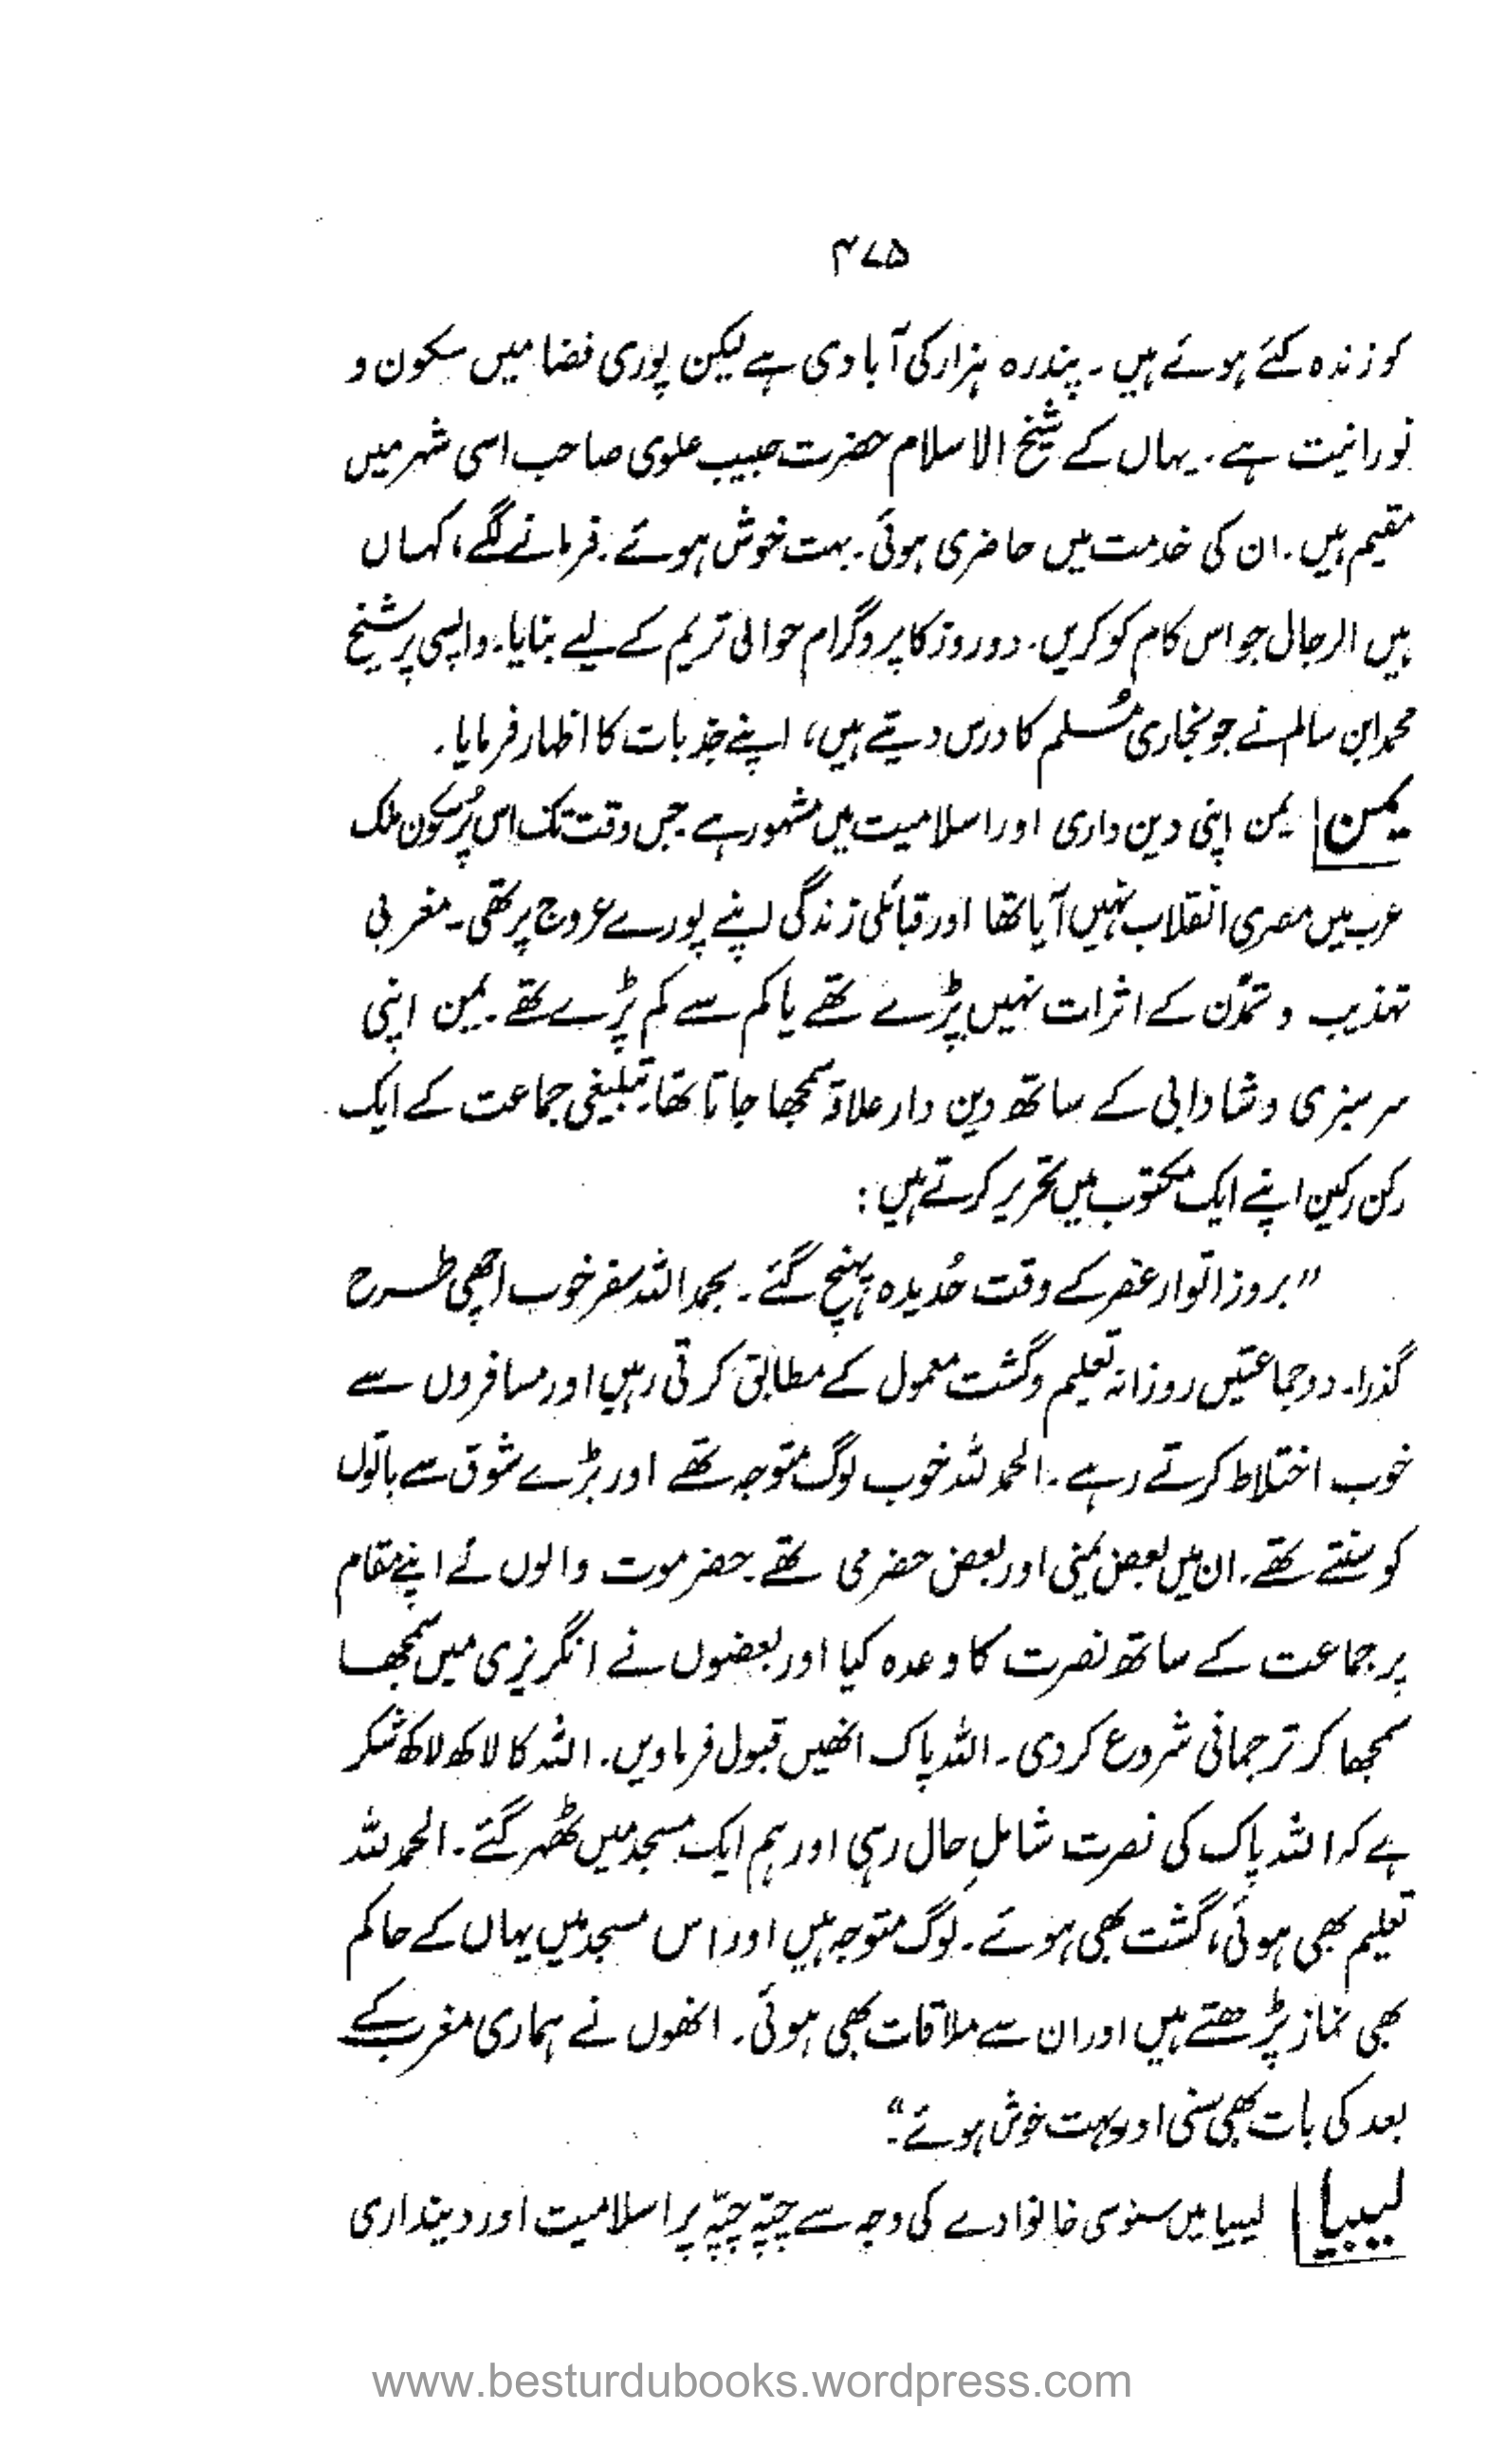 ۴۷۵
کو زندہ کئے ہوئے ہیں۔ پندرہ ہزار کی آبادی ہے لیکن پوری فضا میں سکون و
نورانیت ہے۔ یہاں کے شیخ الاسلام حضرت حبیب علوی صاحب اسی شہر میں
مقیم ہیں۔ ان کی خدمت میں حاضری ہوئی۔ بہت خوش ہوئے۔ فرمانے لگے، کہاں
ہیں الرجال جو اس کام کو کریں۔ دو روز کا پروگرام حوالی تریم کے لیے بنایا۔ واپسی پر شیخ
محمد ابن سالم نے جو بخاری مُسلم کا درس دیتے ہیں، اپنے جذبات کا اظہار فرمایا۔
یمن یمن اپنی دین داری اور اسلامیت میں مشہور ہے جس وقت تک اس پُرسکون ملک
عرب میں مصری انقلاب نہیں آیا تھا اور قبائلی زندگی اپنے پورے عروج پر تھی۔ مغربی
تہذیب و تمدّن کے اثرات نہیں پڑے تھے یا کم سے کم پڑے تھے۔ یمن اپنی
سرسبزی و شادابی کے ساتھ دین دار علاقہ سمجھا جاتا تھا۔ تبلیغی جماعت کے ایک
رکن رکین اپنے ایک مکتوب میں تحریر کرتے ہیں:
"بروز اتوار عصر کے وقت حُدیدہ پہنچ گئے۔ بحمد اللہ سفر خوب اچھی طرح
گذرا۔ دو جماعتیں روزانہ تعلیم و گشت معمول کے مطابق کرتی رہیں اور مسافروں سے
خوب اختلاط کرتے رہے۔ الحمد للہ خوب لوگ متوجہ تھے اور بڑے شوق سے باتوں
کو سنتے تھے۔ ان میں بعض یمنی اور بعض حضرمی تھے۔ حضرموت والوں نے اپنے مقام
پر جماعت کے ساتھ نصرت کا وعدہ کیا اور بعضوں نے انگریزی میں سمجھا
سمجھا کر ترجمانی شروع کردی۔ اللہ پاک انھیں قبول فرماویں۔ اللہ کا لاکھ لاکھ شکر
ہے کہ اللہ پاک کی نصرت شاملِ حال رہی اور ہم ایک مسجد میں ٹھہر گئے۔ الحمد للہ
تعلیم بھی ہوئی، گشت بھی ہوئے۔ لوگ متوجہ ہیں اور اس مسجد میں یہاں کے حاکم
بھی نماز پڑھتے ہیں اور ان سے ملاقات بھی ہوئی۔ انھوں نے ہماری مغرب کے
بعد کی بات بھی سنی اور بہت خوش ہوئے۔"
لیبیا لیبیا میں سنوسی خانوادے کی وجہ سے چپّہ چپّہ پر اسلامیت اور دینداری
www.besturdubooks.wordpress.com